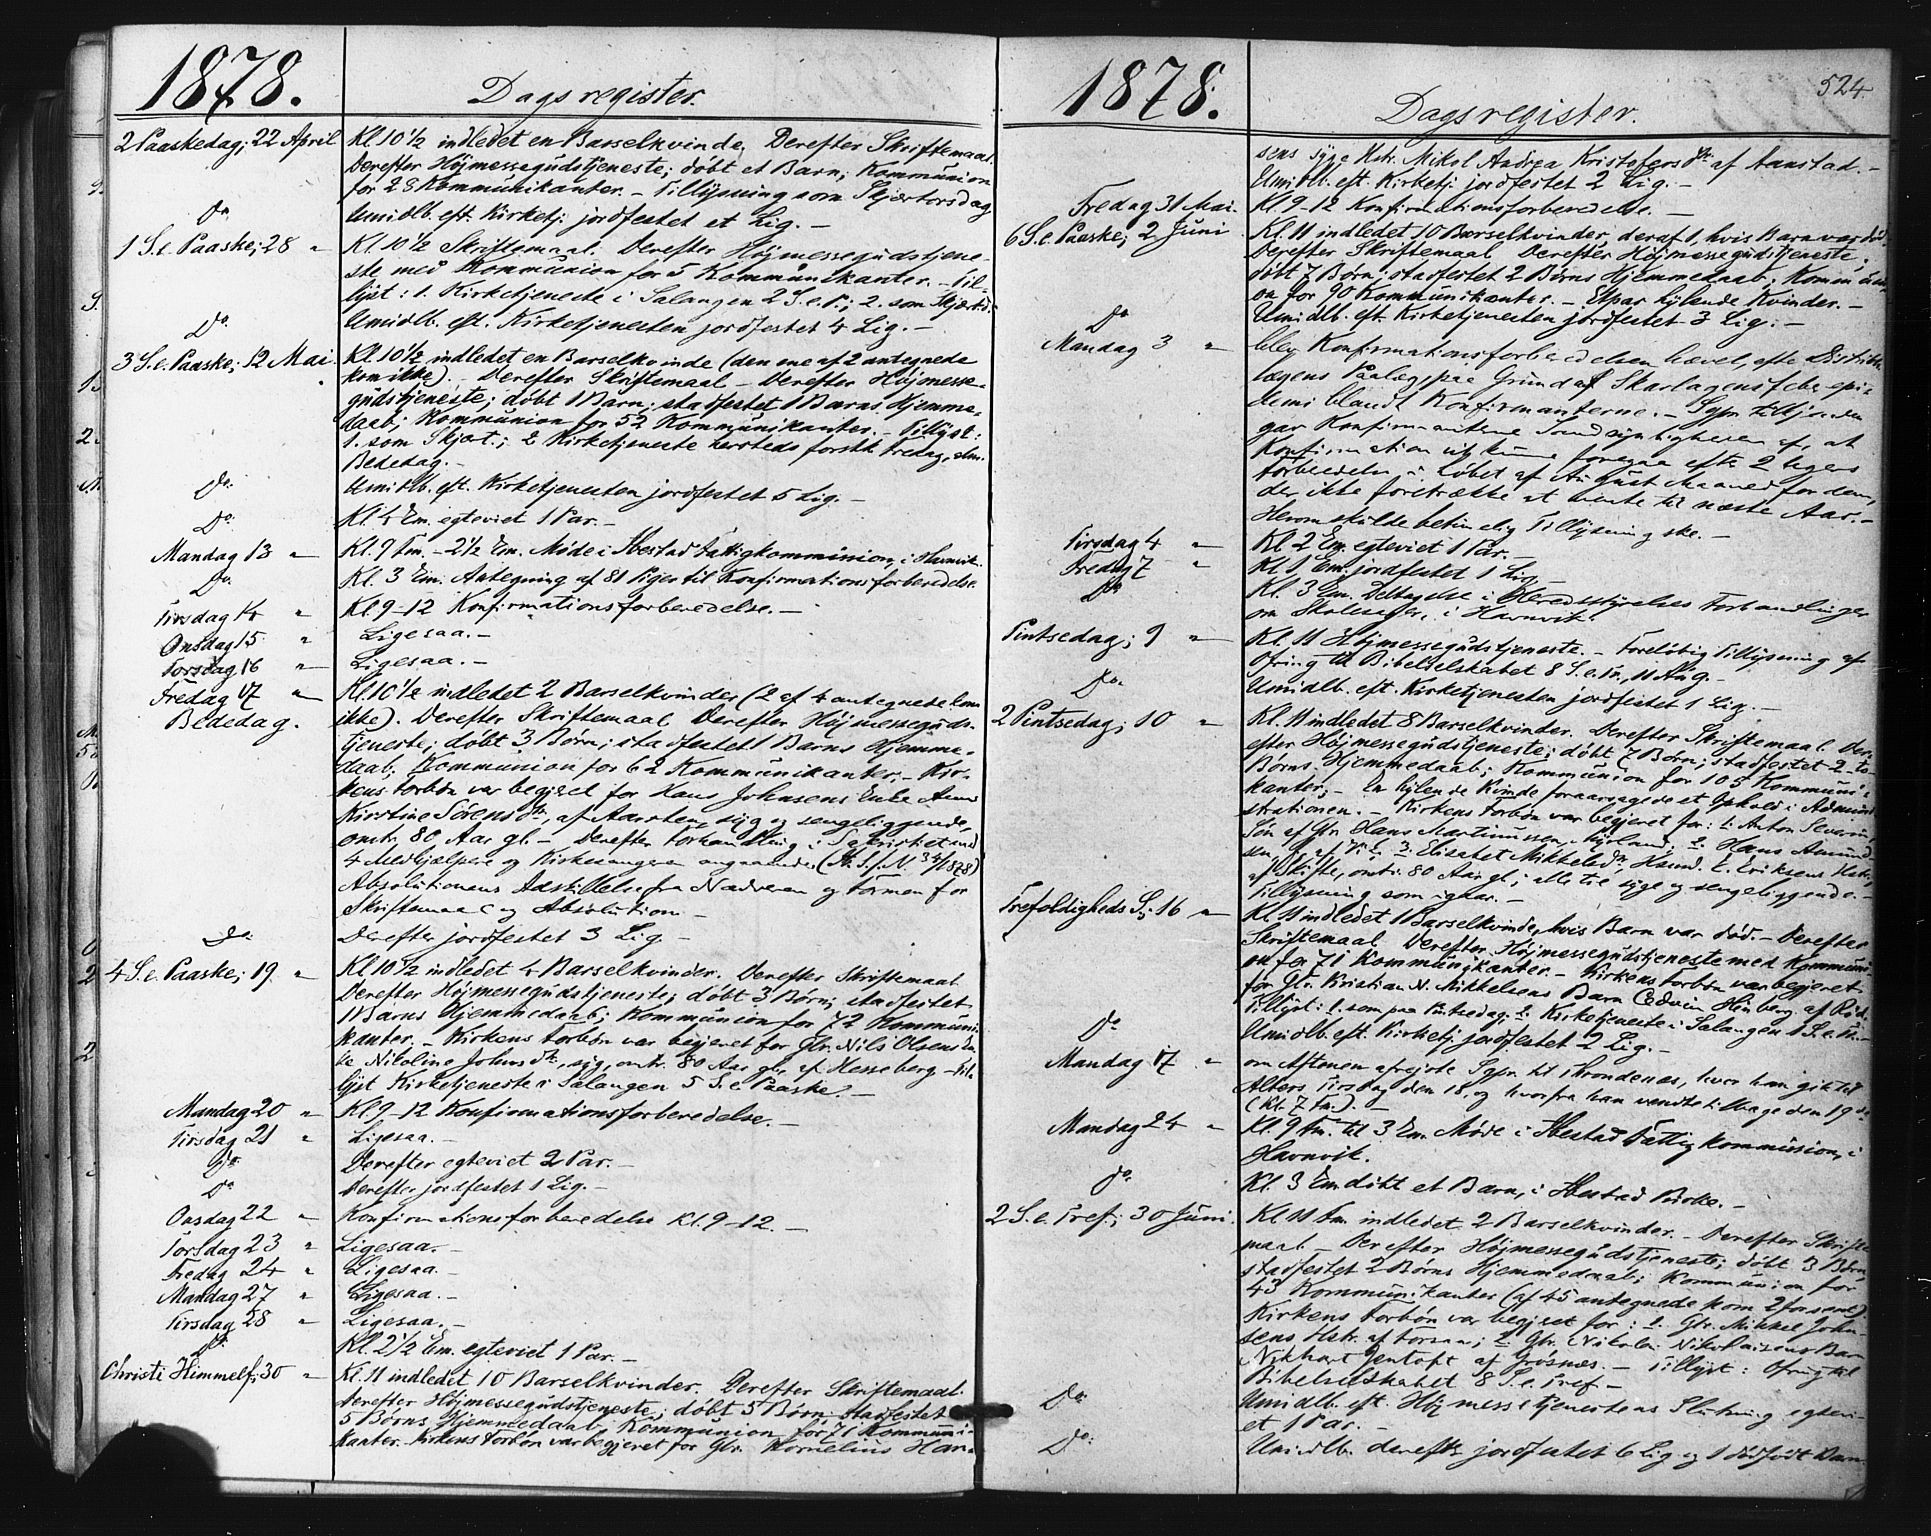 1878.
Dagsregister.
2 Paaskedag; 22 April Kl 10 1/2 indledet en Barselkvinde. Derefter Skriftemaal.
Derefter Højmessegudstjeneste; døbt et Barn; Kommunion
for 28 Kommunikanter. - Tillysning som Skjærtorsdag
Do Umidlb. eft. Kirketj. jordfestet et Lig. -
1 S. e. Paaske; 28 " Kl 10 1/2 Skriftemaal. Derefter Højmessegudstjene-
ste med Kommunion for 5 Kommunikanter. - Til-
lyst: 1. Kirketjeneste i Salangen 2 S. e. P.; 2. som Skjærtd.
Do Umidlb. eft. Kirketjenesten jordfestet 4 Lig. -
3 S. e. Paaske; 12 Mai. Kl 10 1/2 indledet en Barselkvinde (den ene af 2 antegnede
kom ikke). - Derefter Skriftemaal - Derefter Højmesse-
gudstjeneste; døbt 1 Barn; stadfestet 1 Barns Hjemme-
daab; Kommunion for 52 Kommunikanter. - Tillyst:
1. som Skjæt.; 2 Kirketjeneste hersteds førstk Fredag, alm.
Bededag. -
Do Umidlb. eft. Kirketjenesten jordfestet 5 Lig. -
Do. Kl. 4 Em. egteviet 1 Par. -
Mandag 13 " Kl. 9 Fm. - 2 1/2 Em. Møde i Ibestad Fattigkommission, i Havnvik.
Do. Kl. 3 Em. Antegning af 81 Piger til Konfirmationsforberedelse.
Tirsdag 14 " Kl. 9-12 Konfirmationsforberedelse. -
Onsdag 15 " Ligesaa. -
Torsdag 16 " Ligesaa. -
Fredag 17 " Kl 10 1/2 indledet 2 Barselkvinder (2 af 4 antegnede kom
Bededag. ikke). Derefter Skriftemaal Derefter Højmesseguds-
tjeneste; døbt 3 Børn; stadfestet 1 Barns Hjemme-
daab; Kommunion for 62 Kommunikanter. - Kir-
kens Forbøn var begjeret for Hans Johnsens Enke Anne
Kirstine Sørensdtr, af Aarsten, syg og sengeliggende,
omtr. 80 Aar gl. - Derefter Forhandling i Sakristiet med
4 Medhjælpere og Kirkesangeren angaaende (N 34/1878)
Absolutionens Adskillelse fra Nadveren og Formen for
Skriftemaal og Absolution. -
Do. Derefter jordfestet 3 Lig. -
4 S. e. Paaske; 19. " Kl 10 1/2 indledet 4 Barselkvinder. Derefter Skriftemaal
Derefter Højmessegudstjeneste; døbt 3 Børn; stadfestet
1 Barns Hjemmedaab; Kommunion for 72 Kommuni-
kanter. - Kirkens Forbøn var begjeret for Gbr. Nils Olsens En-
ke Nikoline Johnsdtr, syg, omtr. 80 Aar gl., af Hesseberg - Til-
lyst Kirketjeneste i Salangen 5 S. e Paaske. -
Mandag 20 " Kl. 9-12 Konfirmationsforberedelse. -
Tirsdag 21 " Ligesaa. -
Do Derefter egteviet 2 Par. -
Do Derefter jordfestet 1 Lig. -
Onsdag 22 " Konfirmationsforberedelse Kl. 9-12. -
Torsdag 23 " Ligesaa. -
Fredag 24 " Ligesaa. -
Mandag 27 " Ligesaa. -
Tirsdag 28 " Ligesaa. -
Do. Kl. 2 1/2 Em. egteviet 1 Par. -
Christi Himmelf; 30 " Kl. 11 indledet 10 Barselkvinder. Derefter Skriftemaal.
Derefter Højmessegudstjeneste; døbt 5 Børn; stadfestet
5 Børns Hjemmedaab; Kommunion for 71 Kommuni-
kanter. Kirkens Forbøn var begjeret for Gbr. Kornelius Han-
1878.
524
Dagsregister.
sens syge Hstr. Mikol Andrea Kristofersdtr af Aanstad. -
Umidlb. eft. Kirketj. jordfestet 2 Lig. -
Fredag 31 Mai. Kl. 9-12 Konfirmationsforberedelse. -
6 S. e. Paaske; 2 Juni Kl. 11 indledet 10 Barselkvinder, deraf 1, hvis Barn var død.
Derefter Skriftemaal Derefter Højmessegudstjeneste;
døbt 7 Børn; stadfestet 2 Børns Hjemmedaab; Kommuni-
on for 90 Kommunikanter. - Et par hylende Kvinder. -
Do Umidlb. eft. Kirketjenesten jordfestet 3 Lig. -
Mandag 3 " blev Konfirmationsforberedelsen hævet, efter Distrikts-
lægens Paalæg, paa Grund af Skarlagensfeberepi-
demi blandt Konfirmanterne. - Sgpr tilkjende-
gav Konfirmantene Sandsynligheden af, at
Konfirmation vil kunne foregaa efter 2 Ugers
Forberedelse i Løbet af August Maaned for dem,
der ikke foretrække at vente til næste Aar. -
Herom skulde betimelig Tillysning ske. -
Tirsdag 4 " Kl 2 Em. egteviet 1 Par. -
Fredag 7 " Kl. 1 Em. jordfestet 1 Lig
Do Kl. 3 Em. Deltagelse i Heredsstyrelses Forhandlinger
om Skolesager, i Havnvik.
Pintsedag; 9 " Kl. 11 Højmessegudstjeneste. - Foreløbig Tillysning af
Ofring til Bibelselskabet 8 S. e. Tr., 11 Aug. -
Do. Umidlb. eft. Kirketjenesten jordfestet 1 Lig. -
2 Pintsedag; 10 " Kl. 11 indledet 8 Barselkvinder. Derefter Skriftemaal. Der-
efter Højmessegudstjeneste; døbt 7 Børn; stadfestet 2-to
Børns Hjemmedaab; Kommunion for 103 Kommuni-
kanter; - En hylende Kvinde foraarsagede et Ophold i Admini-
strationen. - Kirkens Forbøn var begjeret for: 1. Anton Severin
Søn af Gbr Hans Martinussen, 2. Hans Amund-
sen, 3. Elisabet Mikkelsdtr, Husmd. E. Eriksens Hstr,
omtr. 80 Aar gl.; alle tre syge og sengeliggende. -
Tillysning som igaar. -
Trefoldigheds S; 16 " Kl. 11 indledet 1 Barselkvinde, hvis Barn var død. - Derefter
Skriftemaal. Derefter Højmessegudstjeneste med Kommuni-
on for 71 Kommunikanter. - Kirkens Forbøn var begjeret
for Gbr. Kristian N. Mikkelsens Barn Edvin Hinberg af
Tillyst: 1. som paa Pintsedag; 2. Kirketjeneste i Salangen 1 S. e. Tr. -
Do Umidlb. eft. Kirketj. jordfestet 2 Lig. -
Mandag 17 " om Aftenen afrejste Sgpr til Trondenæs, hvor han gik til
Alters Tirsdag den 18, og hvorfra han vendte tilbage den 19de
(Kl. 7 Fm.). -
Mandag 24 " Kl. 9 Fm. til 3 Em. Møde i Ibestad Fattigkommission, i
Havnvik.
Do. Kl. 3 Em. døbt et Barn, i Ibestad Kirke. -
2 S. e. Tref; 30 Juni. Kl. 11 Fm. indledet 2 Barselkvinder. - Derefter Skrifte-
maal - Derefter Højmessegudstjeneste; døbt 3 Børn,
stadfestet 2 Børns Hjemmedaab; Kommunion for
43 Kommunikanter (af 45 antegnede kom 2 for sent).
Kirkens Forbøn var begjeret for: 1. Gbr. Mikkel John-
sens Hstr. af Forsaa; 2 Gbr. Nikolai Nikolaisens Barn
Nikhart Jentoft af Grøsnes. - Tillyst: Ofring til
Bibelselskabet 8 S. e. Tref -
Do Umidlb. eft. Højmessetjenestens Slutning egtevi-
et 1 Par. -
Do. Umidlb. derefter jordfestet 6 Lig og 1 dødfødt Barn